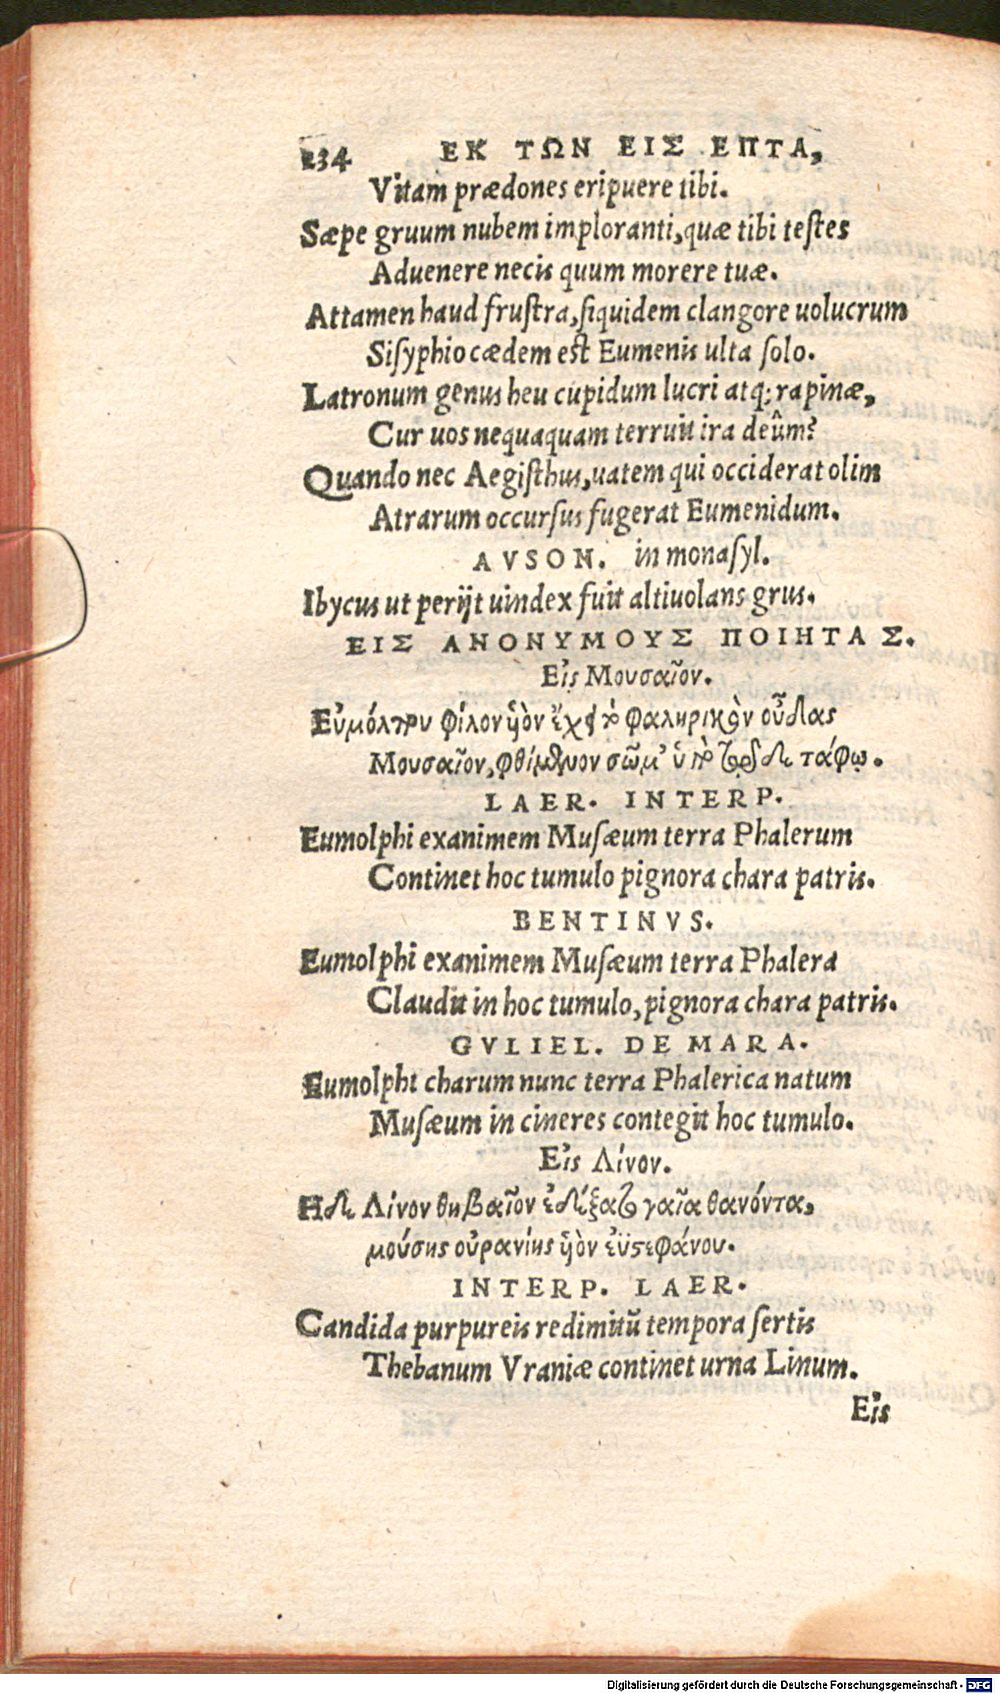 234 ΕΚ ΤΩΝ ΕΙΣ ΕΠΤΑ,
Vitam prædones eripuere tibi.
Sæpe gruum nubem imploranti, quæ tibi testes
Aduenere necis quum morere tuæ.
Attamen haud frustra, siquidem clangore uolucrum
Sisyphio cædem est Eumenis ulta solo.
Latronum genus heu cupidum lucri atq; rapinæ,
Cur uos nequaquam terruit ira deûm?
Quando nec Aegisthus, uatem qui occiderat olim
Atrarum occursus fugerat Eumenidum.
AVSON. in monasyl.
Ibycus ut perijt uindex fuit altiuolans grus.
ΕΙΣ ΑΝΟΝΥΜΟΥΣ ΠΟΙΗΤΑΣ.
Εἰς Μουσαῖον.
Εὐμόλπου φίλον ὑὸν ἔχει τὸ φαληρικὸν οὖδας
Μουσαῖον, φθίμενον σῶμ' ὑπὸ τῷδε τάφῳ.
LAER. INTERP.
Eumolphi exanimem Musæum terra Phalerum
Continet hoc tumulo pignora chara patris.
BENTINVS.
Eumolphi exanimem Musæum terra Phalera
Claudit in hoc tumulo, pignora chara patris.
GVLIEL. DE MARA.
Eumolphi charum nunc terra Phalerica natum
Musæum in cineres contegit hoc tumulo.
Εἰς Λίνον.
Ηδε Λίνον θηβαῖον ἐδέξατο γαῖα θανόντα,
μούσης οὐρανίης ὑὸν ἐϋστεφάνου.
INTERP. LAER.
Candida purpureis redimitũ tempora sertis
Thebanum Vraniæ continet urna Linum.
Εἰς
Digitalisierung gefördert durch die Deutsche Forschungsgemeinschaft - DFG